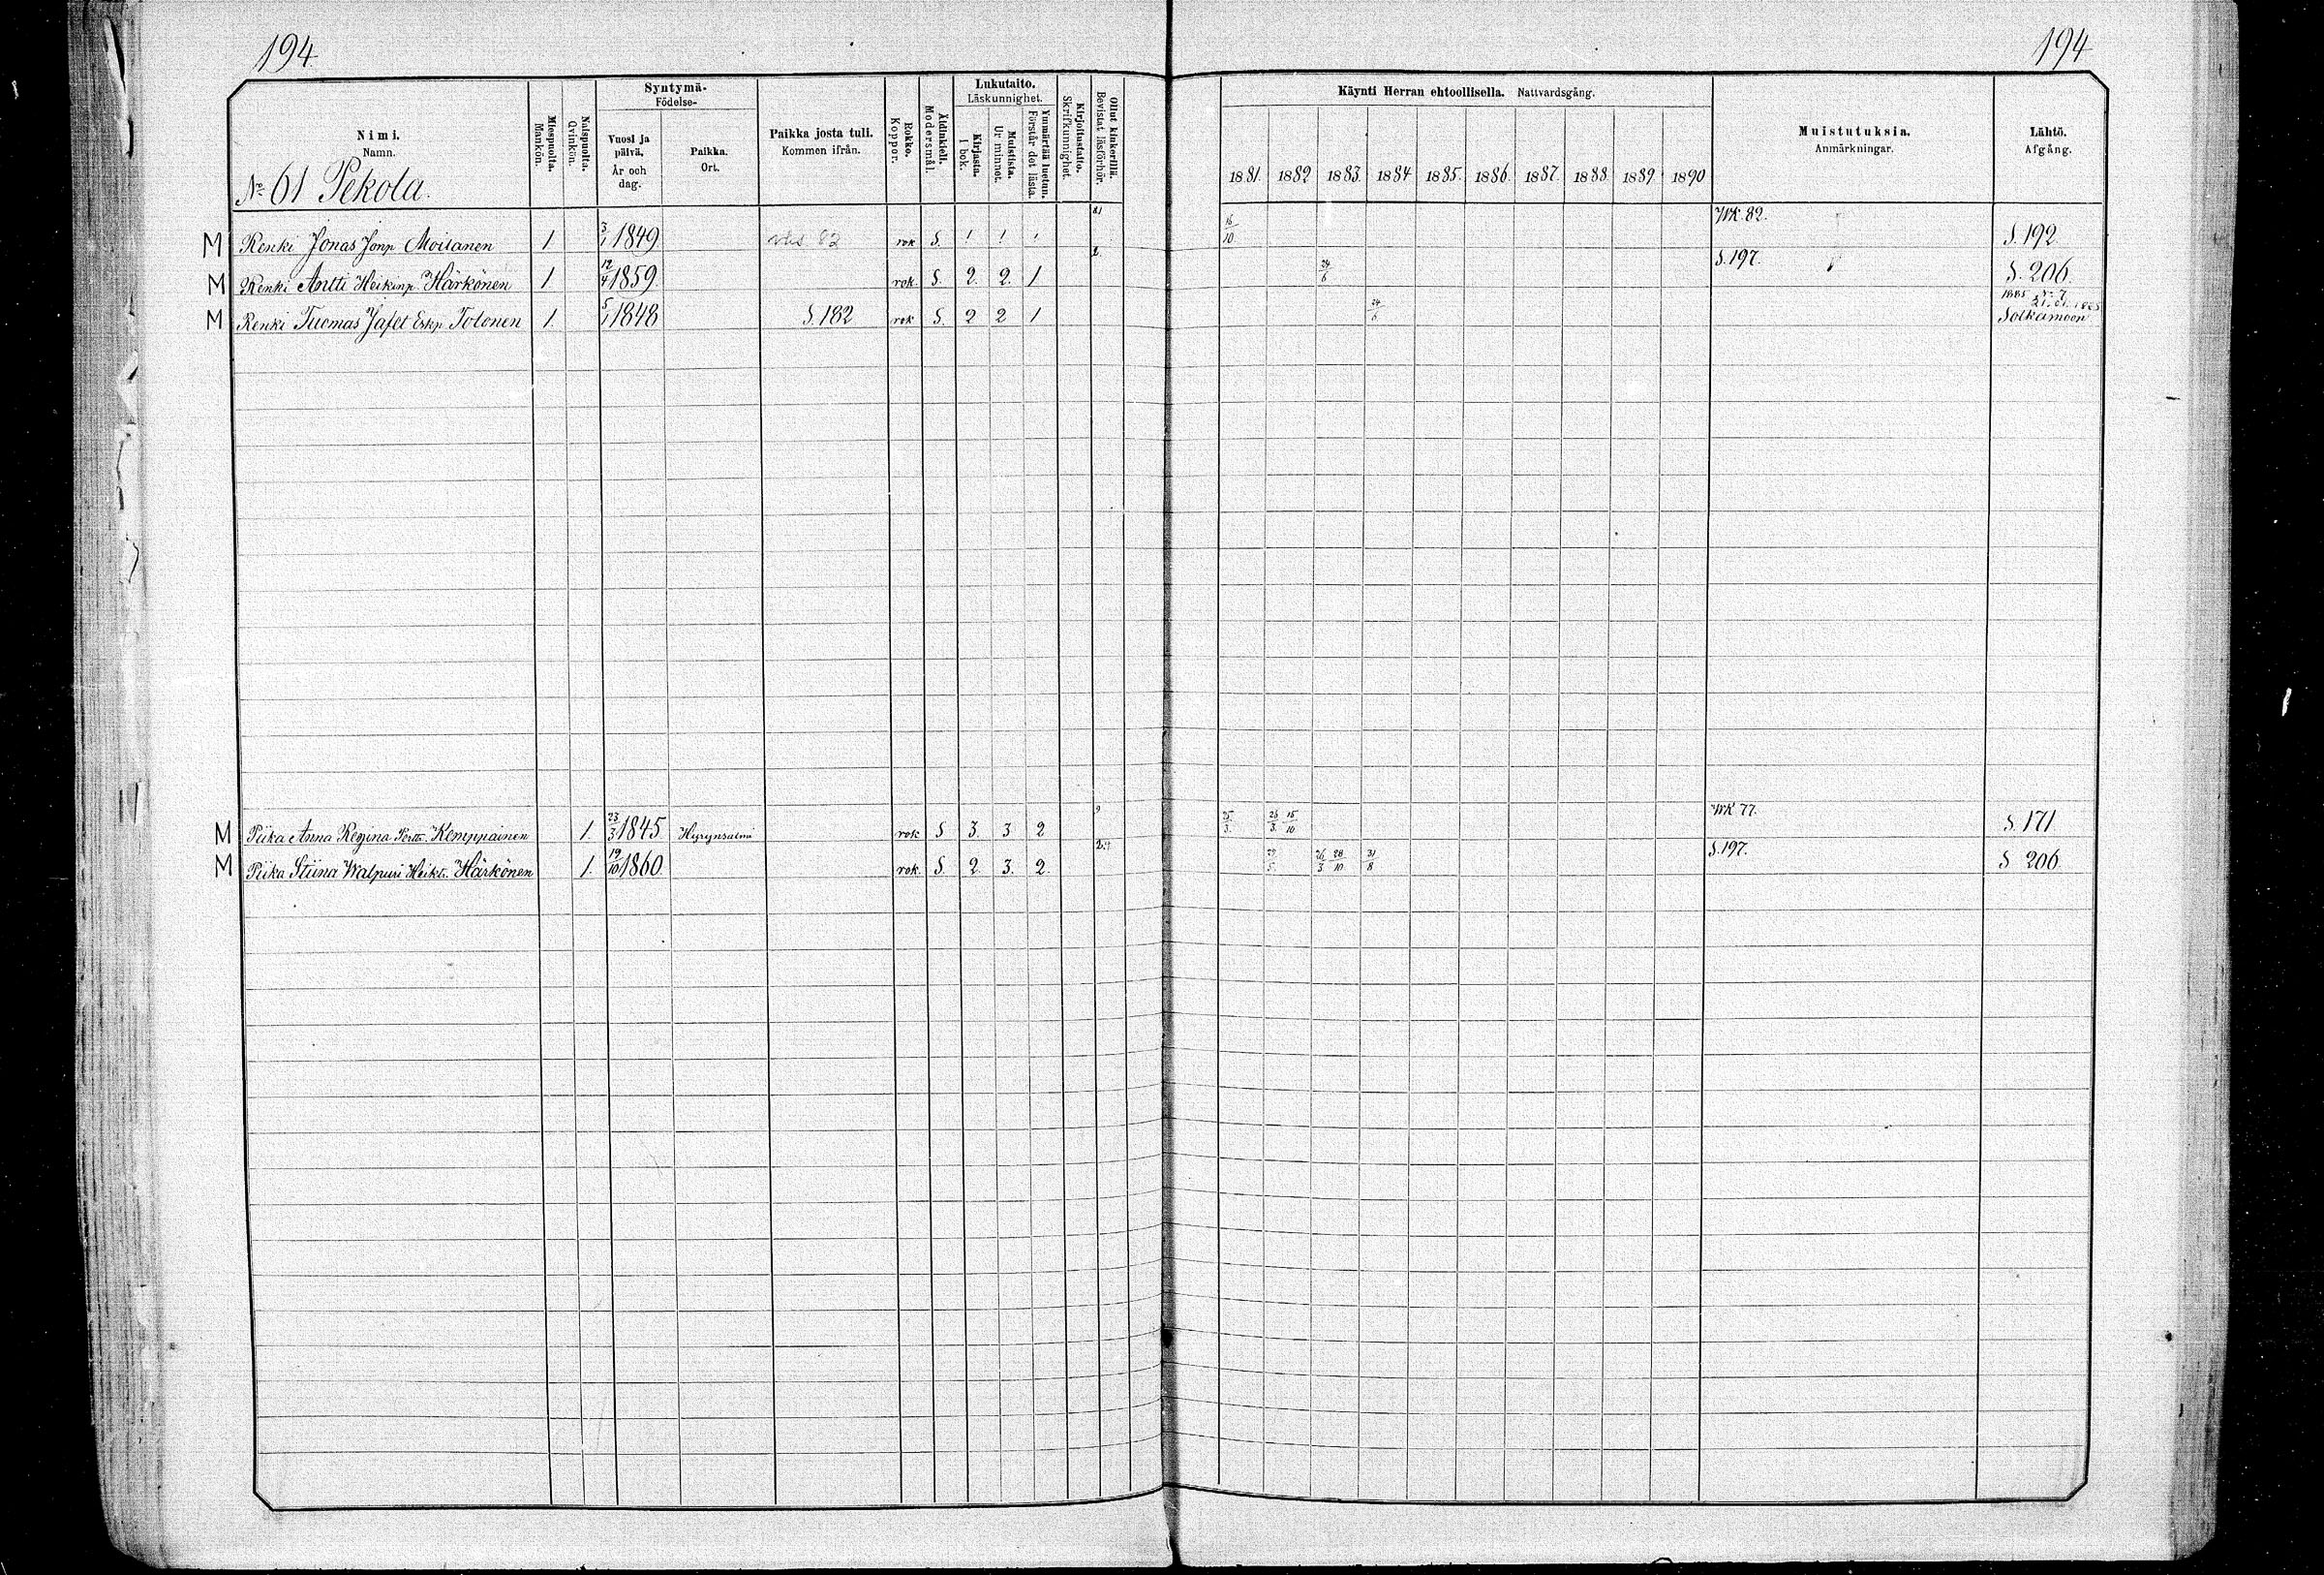 194
194
Nimi.
Namn.
Miespuolta.
Mankön.
Naispuolta.
Qvinkön.
Syntymä-
Födelse-
Vuosi ja
päivä.
År och
dag.
Paikka.
Ort.
Paikka josta tuli.
Kommen ifrån.
Rokko.
Koppor.
Äidinkieli.
Modersmål.
Lukutaito.
Läskunnighet.
Kirjasta.
I bok.
Muistista.
Ur minnet.
Ymmärtää luetun.
Förstår det lästa.
Kirjoitustaito.
Skrifkunnighet.
Ollut kinkerillä.
Bevistat läsförhör.
Käynti Herran ehtoollisella. Nattvardsgång.
1881. 1882 1883. 1884 1885. 1886. 1887. 1888. 1889. 1890
Muistutuksia.
Anmärkningar.
Lähtö.
Afgång.
No 61 Pekola.
M Renki Jonas Jonp Moilanen 1 3/1 1849 rok S. 1 1 1 81 16/10 WK. 82. S. 192.
M Renki Antti Heikinp. Härkönen 1 12/4 1859. rok. S. 2. 2. 1 2. 24/6 S. 197. S. 206.
M Renki Tuomas Jafet Eskp. Tolonen 1. 5/1 1848 S. 182 rok S. 2 2 1 24/6 Sotkamoon
M Piika Anna Regina Pertt. Kemppainen 1. 23/3 1845 Hyrynsalmi rok S 3. 3 2 25/3. 26/3. 15/10 WK 77. S. 171
M Piika Stiina Walpuri Heikt. Härkönen 1. 19/10 1860. rok. S. 2. 3. 2. 29/5. 26/3 28/10 31/8 S. 197. S 206.